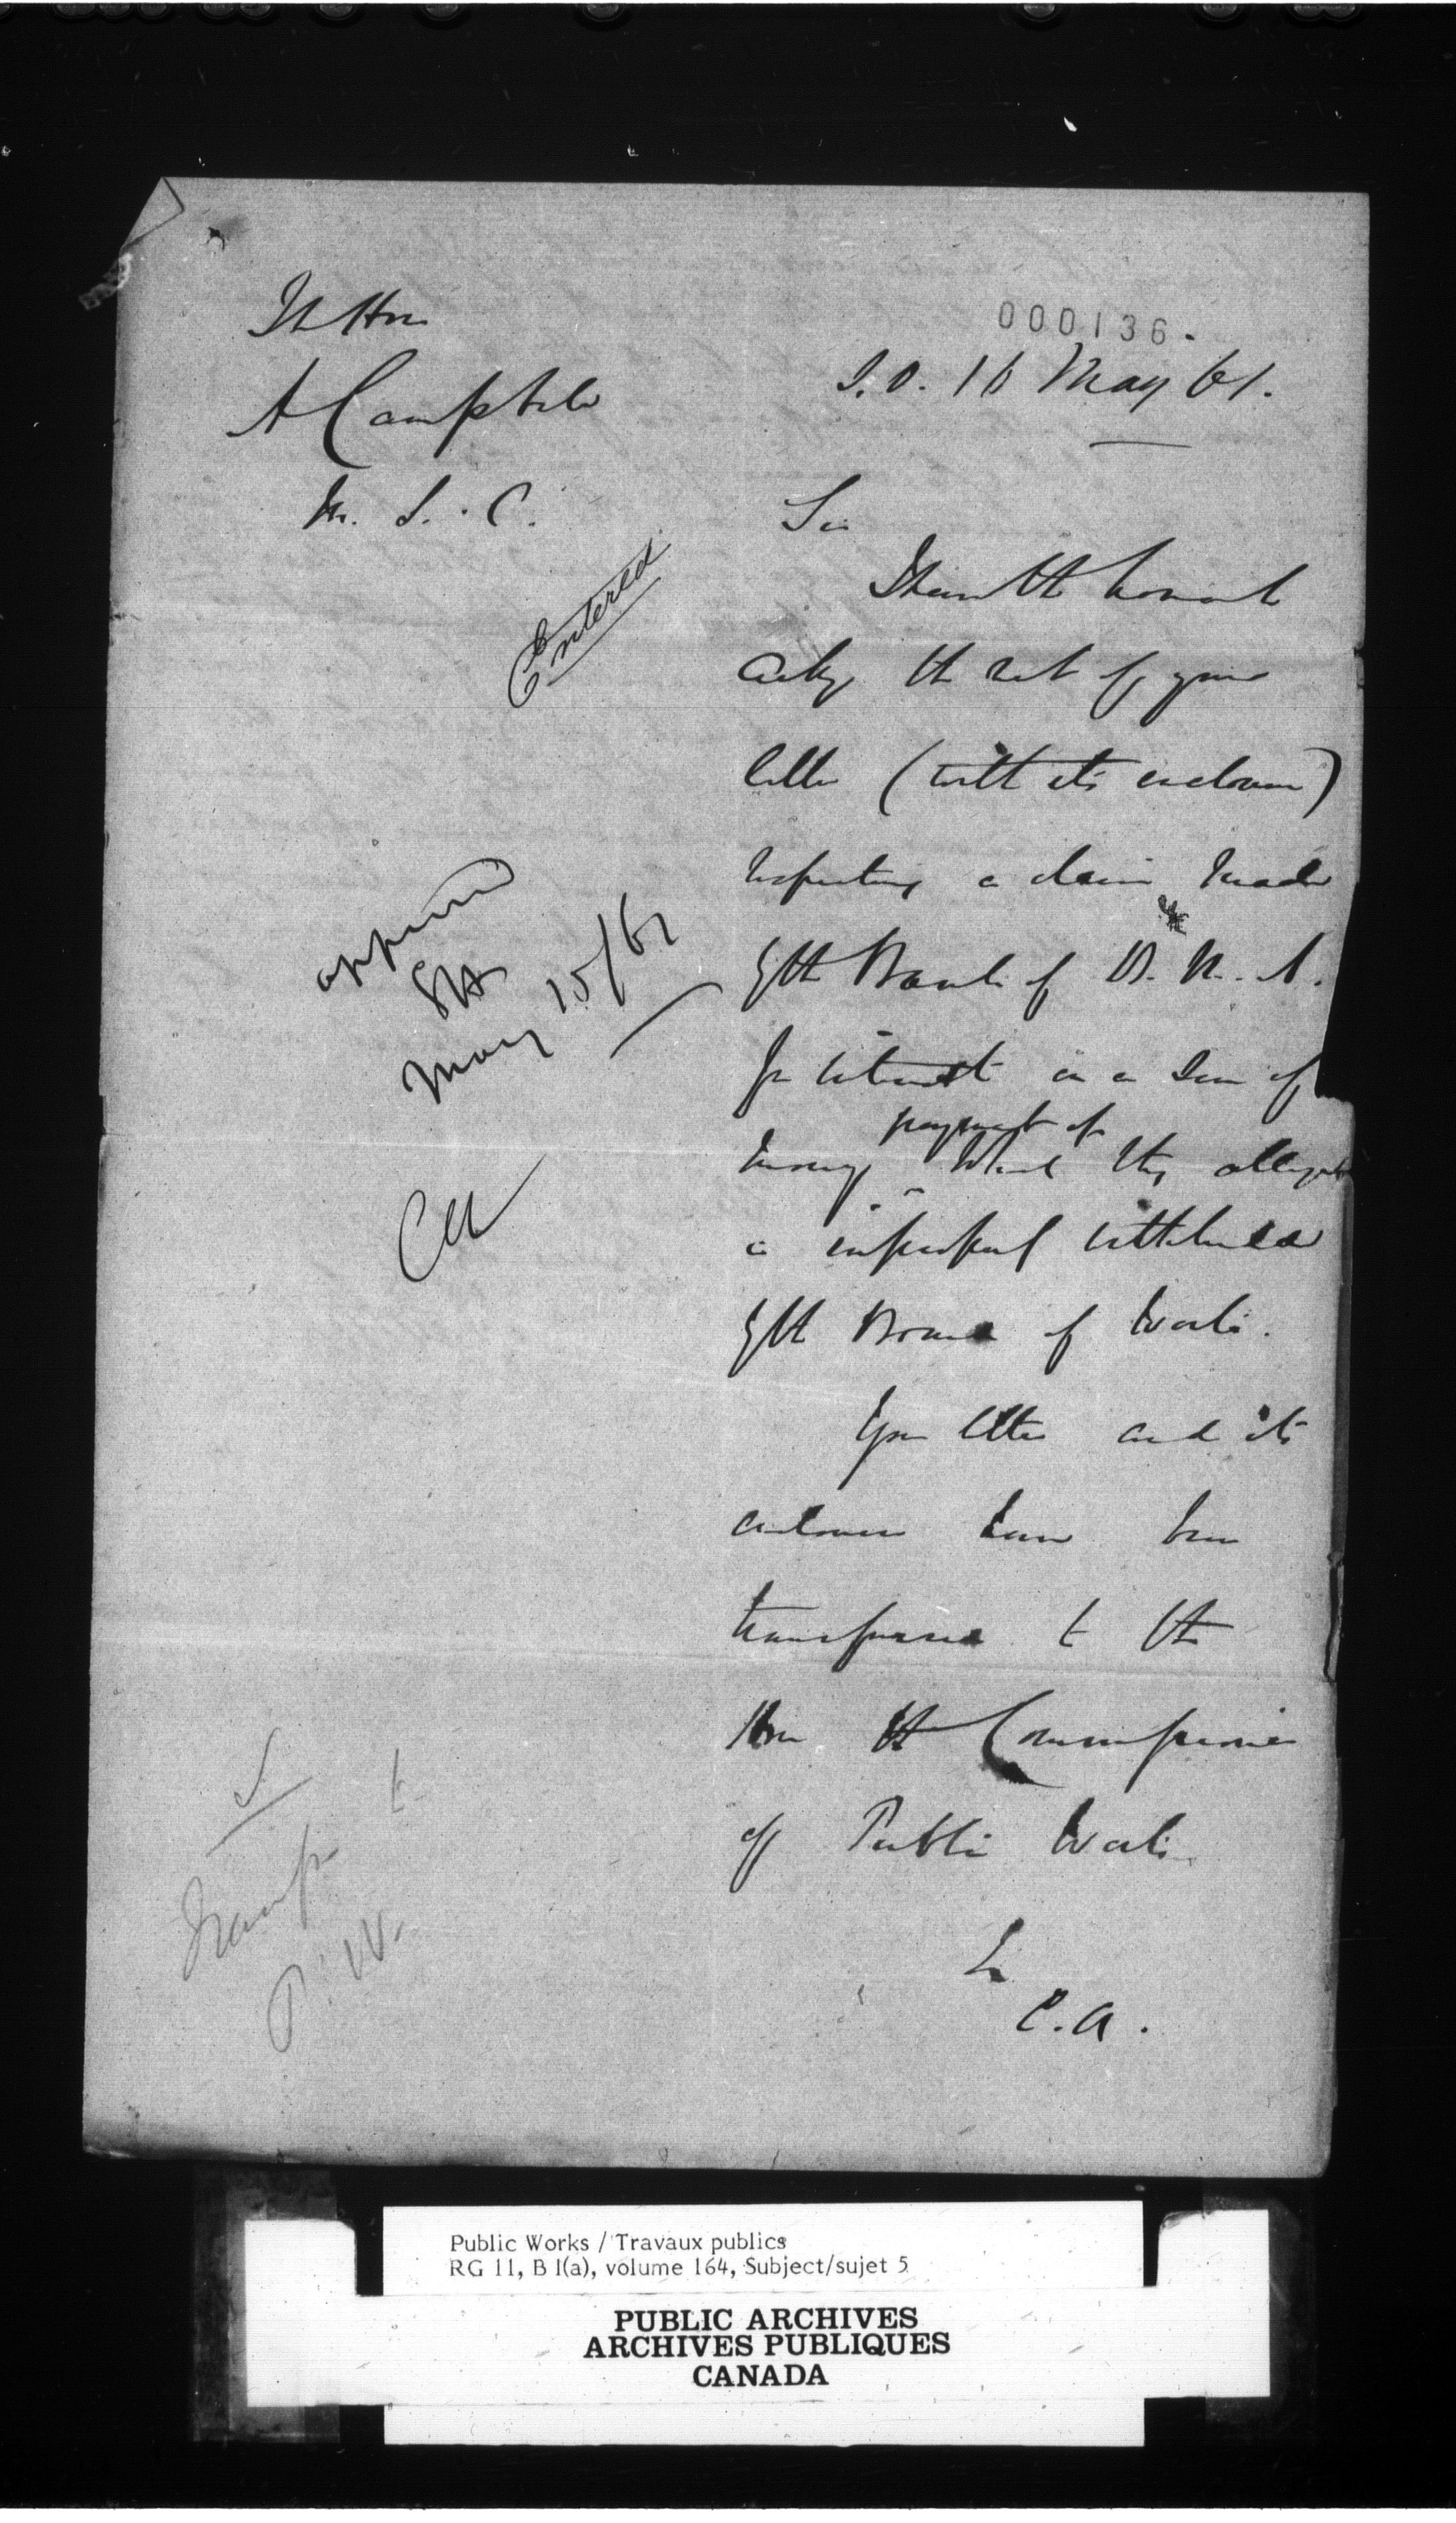 000136.
The Hon
A Campbell
M. L. C.
S.O. 16 May 61.
Sir
I have the honor to
ackg the rect of your
letter (with its enclosure)
respecting a claim made
by the Bank of B. N. A.
for interest on a sum of
payment of
money which they allege
is improperly withheld
by the Board of Works.
Your letter and its
enclosure have been
transferred to the
Hon the Commissioner
of Public Works
E.A.
Entered
approved
May 15/61
Transfer to
P. W.
Public Works / Travaux publics
RG 11, B 1(a), volume 164, Subject/sujet 5
PUBLIC ARCHIVES
ARCHIVES PUBLIQUES
CANADA